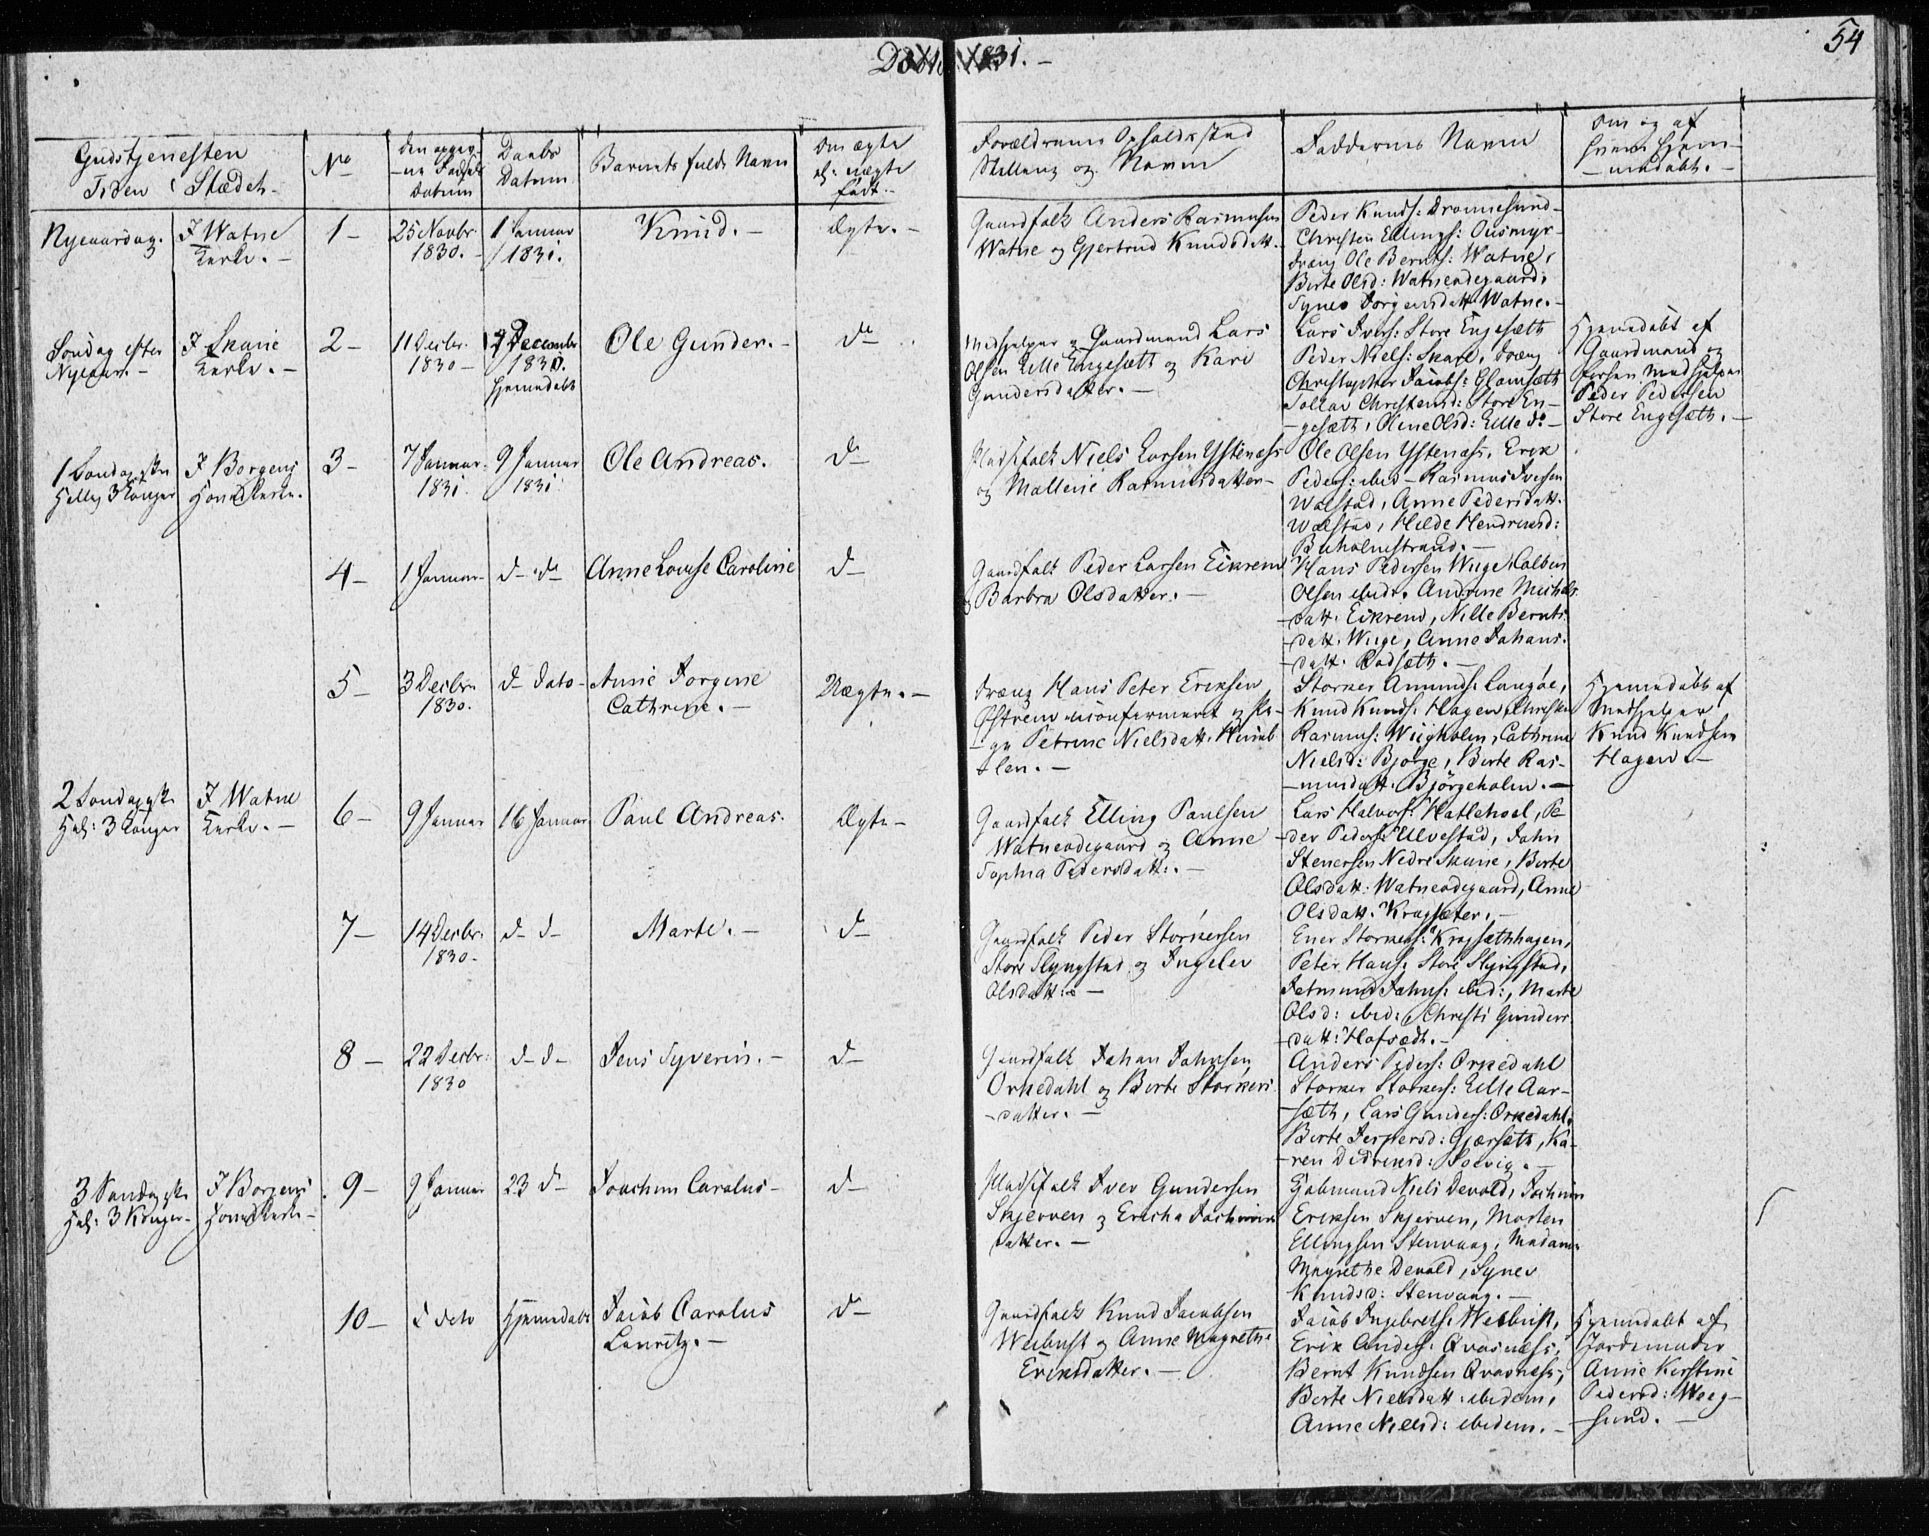 54
1831. –
Gudstjenesten
Tiden Stædet. –
No
Daabs
Datum
Barnets fulde Navn
Om ægte
el: uægte
født. –
Forældrenes Opholdsstad
Stilling og Navne
Faddernes Navne
Om og af
hvem hjem-
– medøbt. –
Nyeaarsdag.
I Watne
Kirke. –
1 –
25 Novbr.
1830. –
1 Januar
1831.
Knud. –
Ægte. –
Gaardfolk Anders Rasmusen
Watne og Gjertrud Knudsdatt.
Peder Knuds: Dronnesund –
Christen Ellings: Ousmyr –
Dreng Ole Bernts: Watne,
Berte Olsd: Watneødegaard,
Synes Jørgensdatt. Watne. –
Søndag efter
Nyeaar. –
I Skarie
Kirke. –
2 –
11 Decbr.
1830 –
December
1830.
hjemedøbt
Ole Gunder. –
do
Medhjelper og Gaardmand Lars
Olsen Lille Engesæth og Kari
Gundersdatter. –
Lars Ivers: Store Engesæth
Peder Niels: Skare, Dreng
Christopher Jacobs: Glomsæth
Christensd: Store En-
– gesæth, Oline Olsd: Lille do –
Hjemedøbt af
Gaardmand og
Medhjelper
Peder Pedersen
Store Engesæth. –
1 Søndag efter
Hellig 3 Konger
I Borgens
Hovedkirke.
3 –
7 Januar
1831.
9 Januar
1831
Ole Andreas.
do
Pladsfolk Niels Larsen Ystenæs
og Mallene Rasmusdatter –
Ole Olsen Ystenæs. Erik
Peders: ibid – Rasmus Iversen
Walstad, Anne Pedersdatt.
Walstad, Hilde Hendriksd:
Buholmestrand. –
4 –
1 Januar –
d – do
Anne Lovise Caroline
d –
Gaardfolk Peder Larsen Eikrem
og Barbra Olsdatter. –
Hans Pedersen Wiige
Olsen ibid. Andrine Michels
– datt. Eikrem, Nille Bernts
– datt. Wiige, Anne Johans:
– datt. Rødsæth. –
5 –
3 Decbr.
1830.
d – dato –
Anne Jorgine
Cathrine. –
Uægte. –
Dreng Hans Peter Eriksen
Østrem og Pi-
– ge Petrine Nielsdatt.
– len. –
Storker Amunds: Langøe,
Knud Knuds: Hagen, Christen
Rasmus: Wiigholen, Cathrine
Nielsd: Bjørge, Berte Ras-
– musdatt: Bjørgeholen. –
Hjemedøbt af
Medhjelper
Knud Knudsen
Hagen. –
2 Søndag efter
Hel: 3 Konger
I Watne
Kirke. –
6 –
9 Januar
16 Januar
Paul Andreas.
Ægte –
Gaardfolk Elling Paulsen
Watneødegaard og Anne
Sophia Petersdatt: . –
Lars Halvors: Hatlehoel, Pe-
– der Peders: Ulvestad, John
Stenersen Nedre Skarie, Berte
Olsdatt: Watneødegaard, Anne
Olsdatt: Kragsæter. –
7 –
14 Decbr.
1830 –
d – d –
Marte. –
d –
Gaardfolk Peder Storkersen
Store Slyngstad og Ingelev
Olsdatt: –
Ener Storkers: Kragsæthhagen,
Peter Hans: Store Slyngstad,
Jetmund Johns: ibid:, Marte
Olsd: ibid: Christi Gunders
– datt: Hofsødt. –
8 –
22 Decbr:
1830
d – d –
Jens Syverin. –
d –
Gaardfolk Johan Johnsen
Orkedahl og Berte Storkers
– datter. –
Anders Peders: Orkedahl
Storker Storkers: Lille Aar-
– sæth, Lars Gunders: Orkedahl,
Berte Jespersd: Gjærsæth, Ka-
– ren Didriksd: Soevig. –
3 Søndag efter
Hel: 3 Konger –
I Borgens
Hovedkirke –
9 –
9 Januar
23 d –
Joachim Carolus –
d –
Pladsfolk Iver Gundersen
Skjerven og Ericha Jochims
datter. –
Kjøbmand Niels Devold, Jochim
Eriksen Skjerven, Morten
Ellingsen Stenvaag, Madame
Magrethe Devold, Synev
Knudsd: Stenvaag. –
10 –
d dito
Hjemedøbt
Jacob Carolus
Lauritz. –
d –
Gaardfolk Knud Jacobsen
Weibust og Anne Magrethe
Eriksdatter. –
Jacob Ingebrets: Weibust,
Erik Anders: Qvasnæs,
Bernt Knudsen Qvasnæs,
Berte Nielsdatt. ibidem,
Anne Nielsd: ibidem. –
Hjemedøbt af
Jordemoder
Anne Kirstine
Pedersd: Waag-
– sund. –